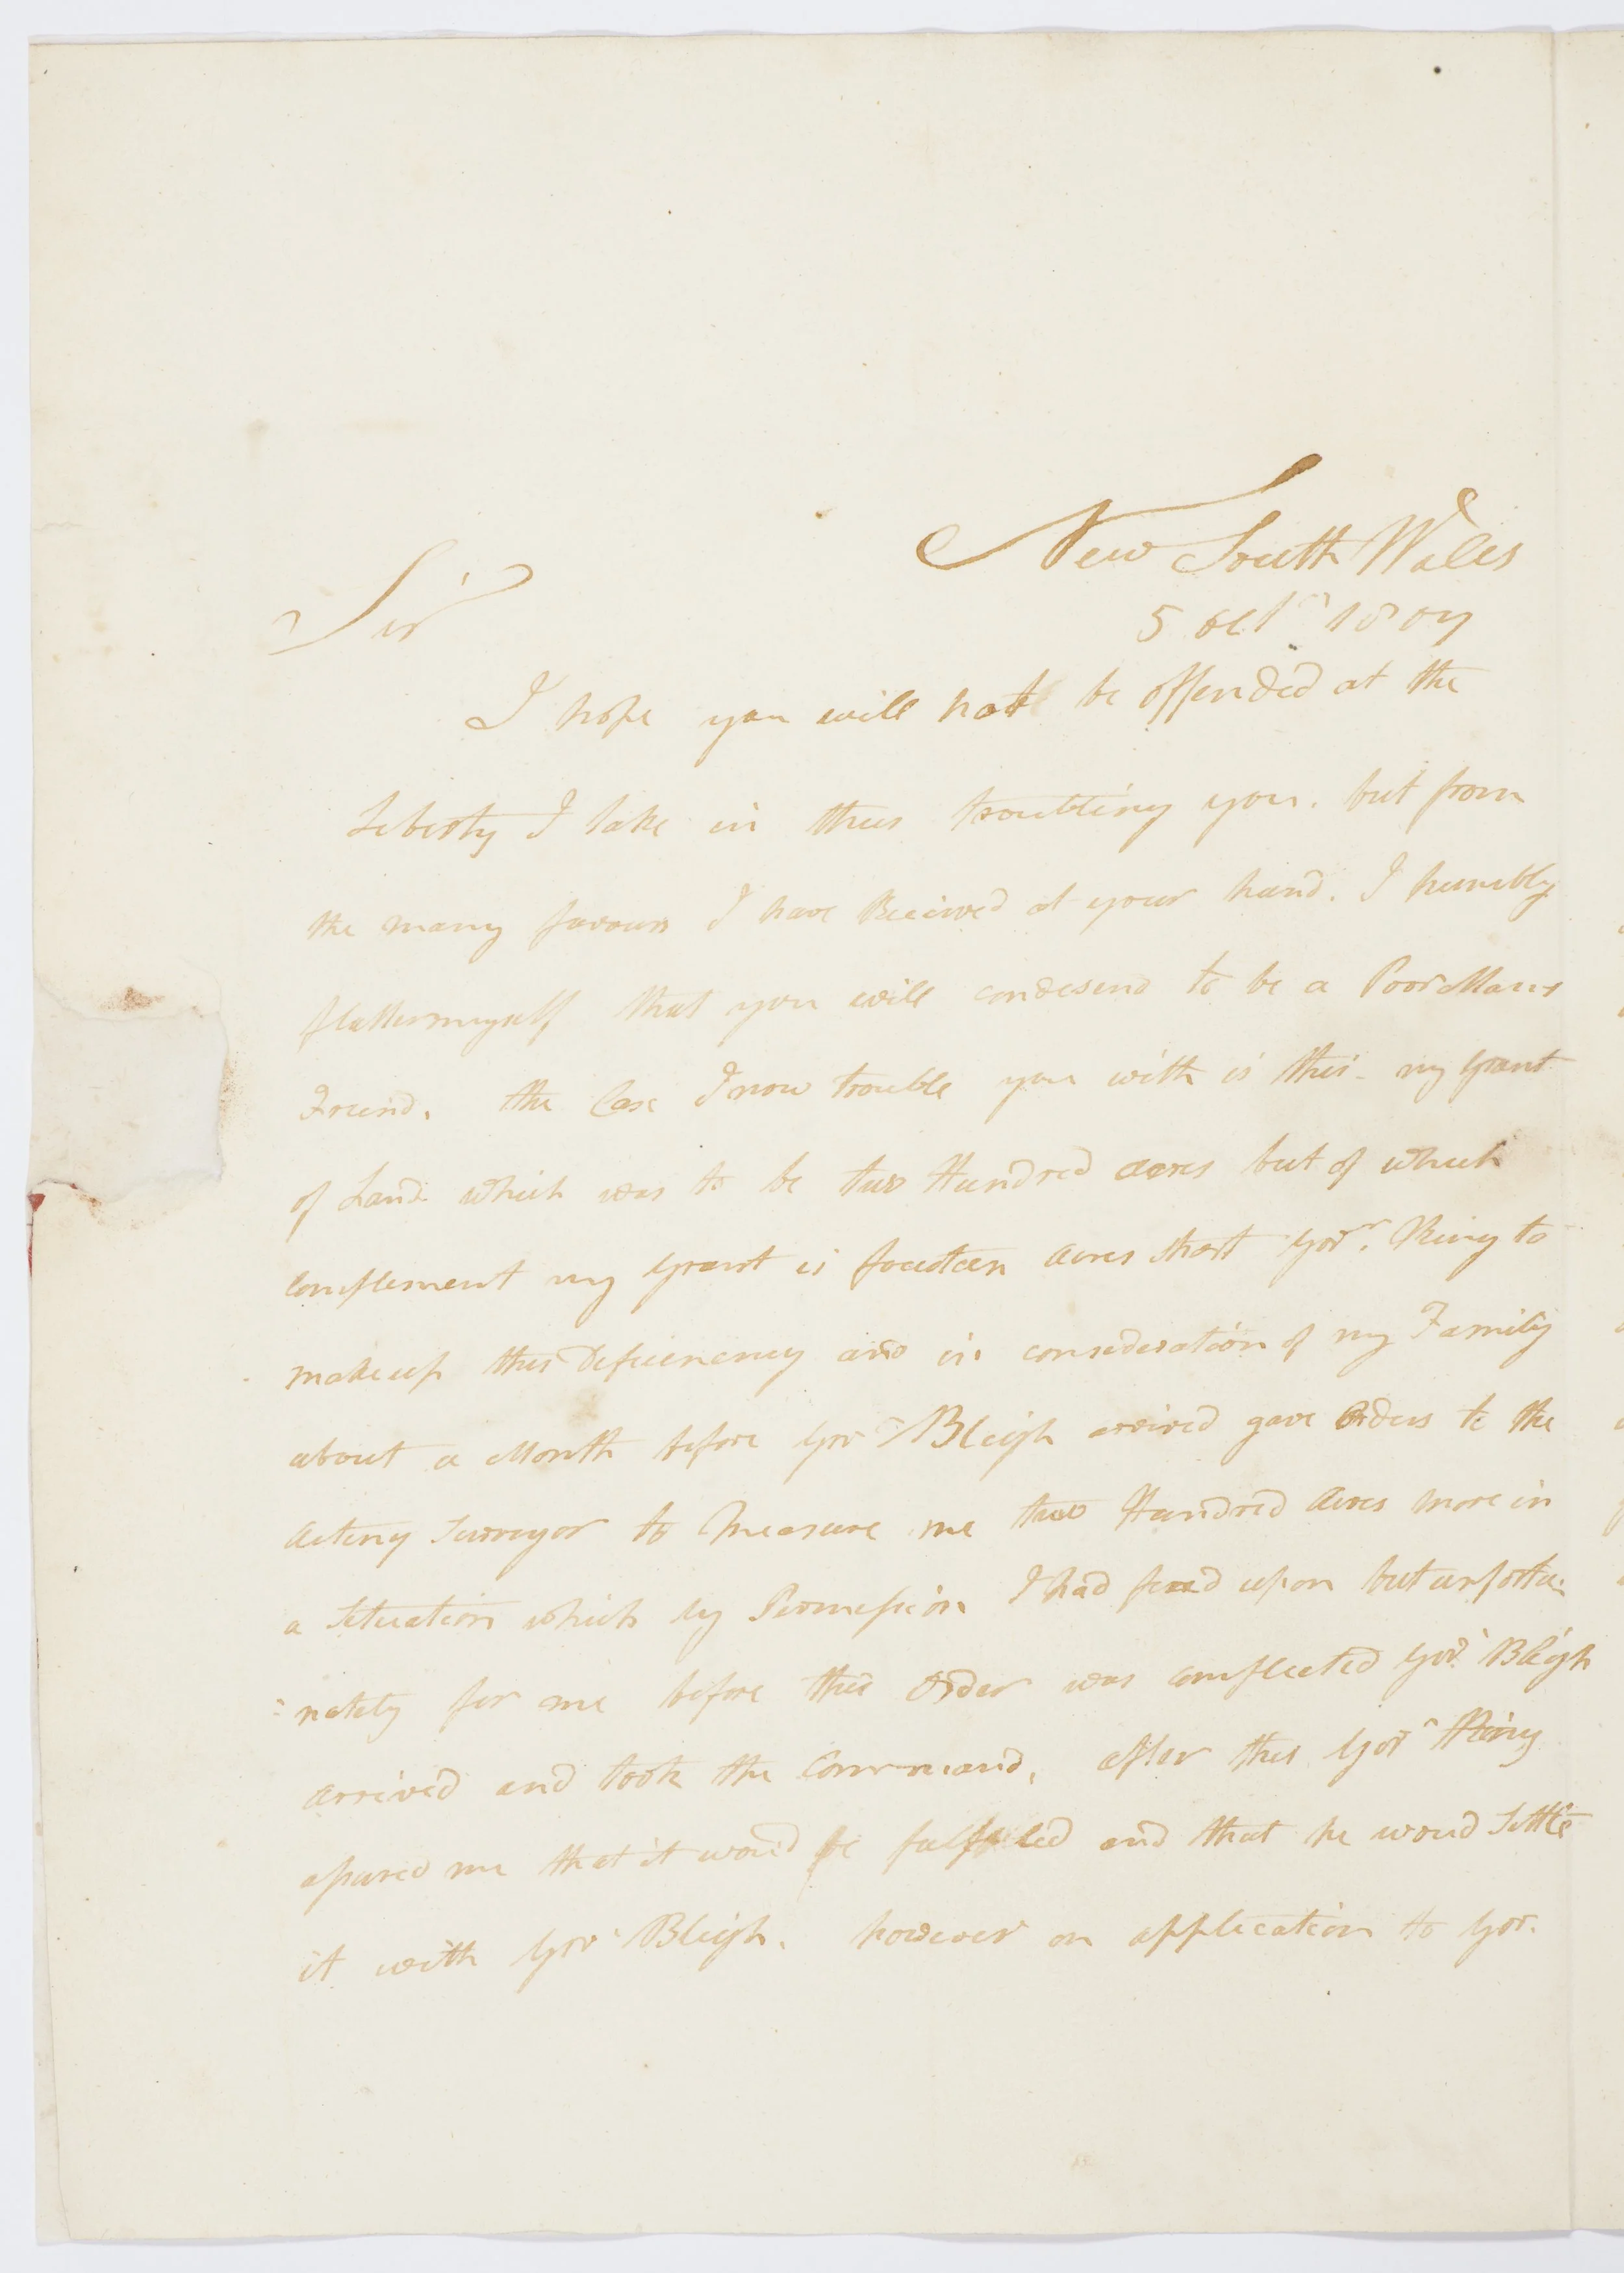 New South Wales
Sir
5 Octr 1807
I hope you will not be offended at the
Liberty I take in thus troubling you. but from
the many favours I have Received at your hand. I humbly
flatter myself that you will condesend to be a Poor Mans
Friend. the Case I now trouble you with is this - my Grant
of Land which was to be two Hundred acres but of which
Complement my Grant is fourteen Acres short Govr. King to
make up this Defficiency and in consideration of my Family
about a Month before Govr Bligh arrived gave Orders to the
Acting Surveyor to Measure me two Hundred Acres more in
a Situation which by Permission I had fixed upon but unfortu-
=nately for me before this Order was Compleeted Govr Bligh
arrived and took the Command, after this Govr King
assured me that it woud be fulfilled and that he woud Settle
it with Govr Bligh. however on application to Gov.